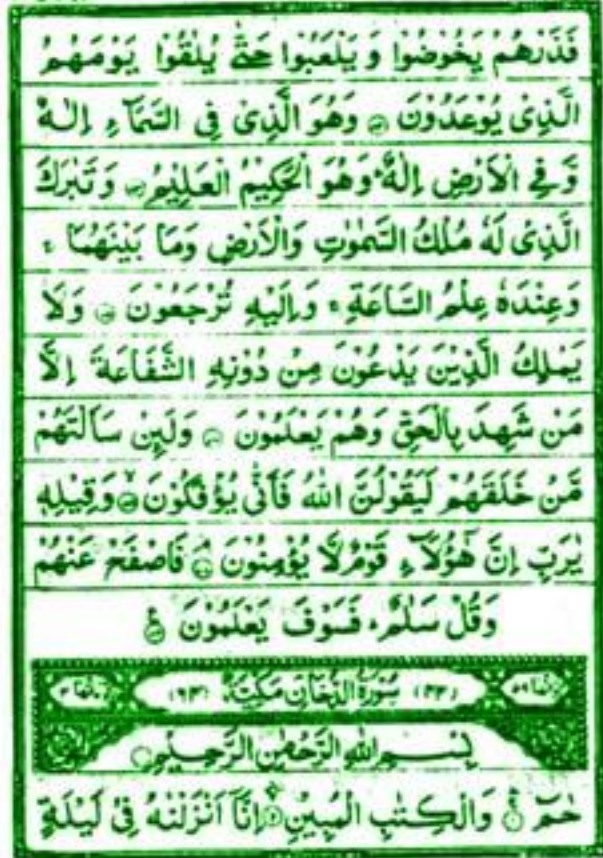 فَذَرْهُمْ يَخُوْضُوْا وَ يَلْعَبُوْا حَتّٰى يُلٰقُوْا يَوْمَهُمُ
الَّذِىْ يُوْعَدُوْنَ ۝ وَهُوَ الَّذِىْ فِى السَّمَآءِ اِلٰهٌ
وَّفِى الْاَرْضِ اِلٰهٌ ؕ وَهُوَ الْحَكِيْمُ الْعَلِيْمُ ۝ وَتَبٰرَكَ
الَّذِىْ لَهٗ مُلْكُ السَّمٰوٰتِ وَالْاَرْضِ وَمَا بَيْنَهُمَا ۚ
وَعِنْدَهٗ عِلْمُ السَّاعَةِ ۚ وَاِلَيْهِ تُرْجَعُوْنَ ۝ وَلَا
يَمْلِكُ الَّذِيْنَ يَدْعُوْنَ مِنْ دُوْنِهِ الشَّفَاعَةَ اِلَّا
مَنْ شَهِدَ بِالْحَقِّ وَهُمْ يَعْلَمُوْنَ ۝ وَلَىِٕنْ سَاَلْتَهُمْ
مَّنْ خَلَقَهُمْ لَيَقُوْلُنَّ اللّٰهُ فَاَنّٰى يُؤْفَكُوْنَ ۝ وَقِيْلِهٖ
يٰرَبِّ اِنَّ هٰٓؤُلَآءِ قَوْمٌ لَّا يُؤْمِنُوْنَ ۝ فَاصْفَحْ عَنْهُمْ
وَقُلْ سَلٰمٌ ؕ فَسَوْفَ يَعْلَمُوْنَ ۝
(٤٤) سُوْرَةُ الدُّخَانِ مَكِّيَّةٌ (٦٤)
بِسْمِ اللّٰهِ الرَّحْمٰنِ الرَّحِيْمِ ۝
حٰمٓ ۝ وَالْكِتٰبِ الْمُبِيْنِ ۝ اِنَّآ اَنْزَلْنٰهُ فِىْ لَيْلَةٍ